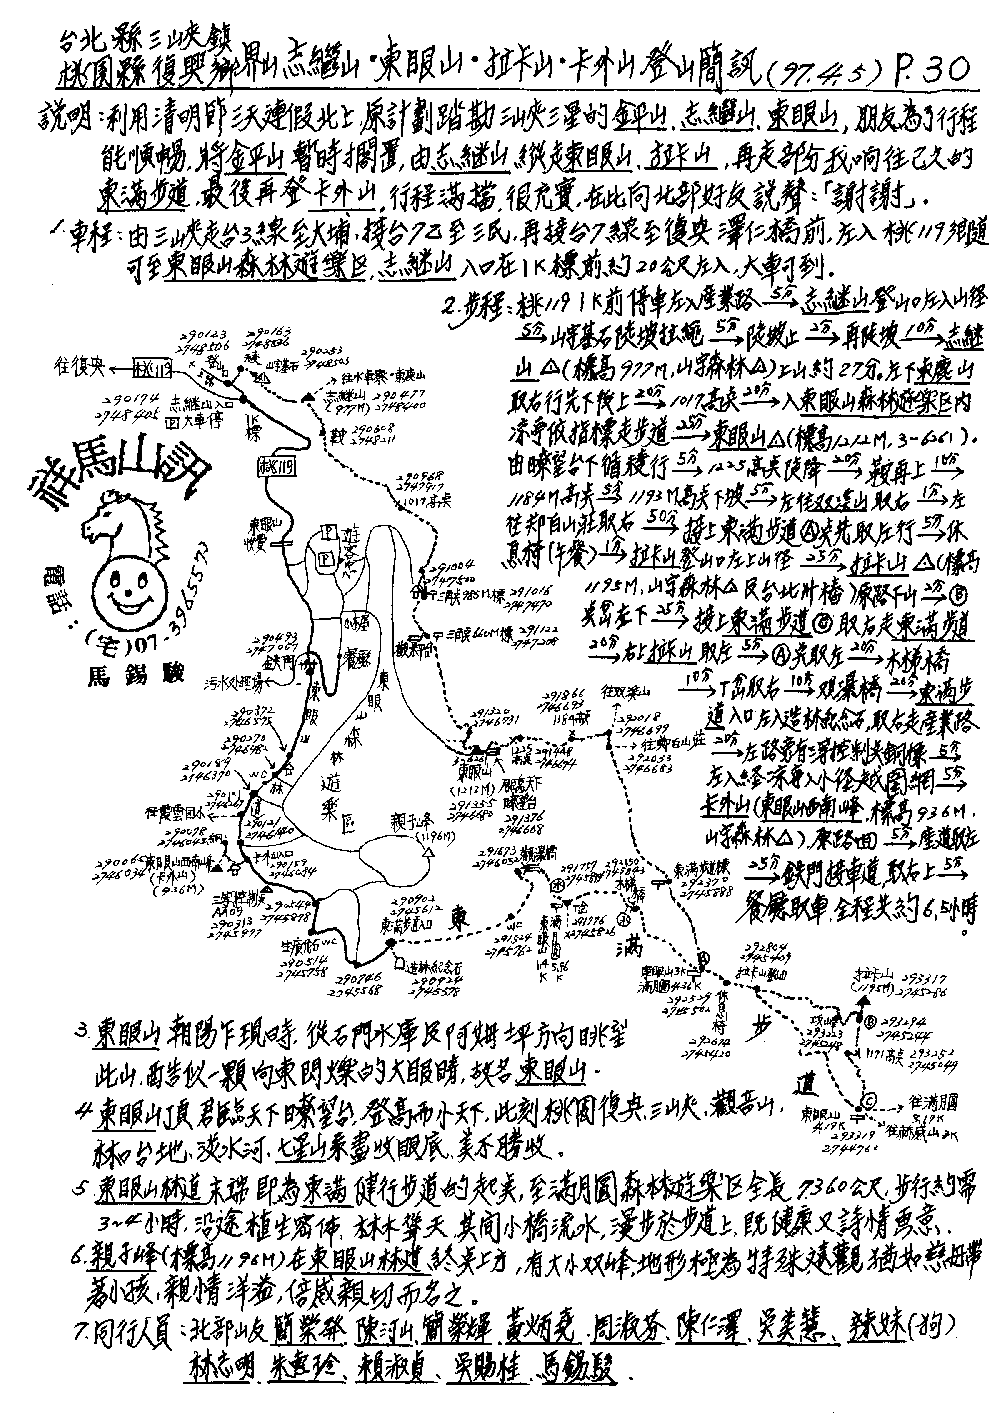 台北縣三峽鎮
桃園縣復興鄉界山志繼山·東眼山·拉卡山·卡外山登山簡訊(97.4.5) P.30
說明:利用清明節三天連假北上,原計劃踏勘三峽三星的金平山.志繼山.東眼山,朋友為了行程
能順暢.將金平山暫時擱置,由志繼山縱走東眼山.拉卡山,再走部分我嚮往已久的
東滿步道,最後再登卡外山,行程滿檔,很充實.在此向北部好友說聲:「謝謝」.
1.車程:由三峽走台3線至大埔,接台7乙至三民,再接台7線至復興澤仁橋前,左入桃119鄉道
可至東眼山森林遊樂區,志繼山入口在1K標前約20公尺左入,大車可到.
2.步程:桃119 1K前停車左入產業路 5分→ 志繼山登山口左入山徑
5分→山字基石陡坡拉繩 5分→陡坡上 2分→再陡坡 10分→志繼
山△(標高977M,山字森林△)上山約27分.左下東麓山
取右行先下後上 20分→1017高點 20分→入東眼山森林遊樂區內
涼亭依指標走步道 25分→東眼山△(標高1212M, 3-6261).
由瞭望台下循稜行 5分→1225高點陡降 20分→鞍再上 10分→
1184M高點 5分→1193M高點下坡 5分→左往双溪山取右 1分→左
往郑白山莊取右 50分→接上東滿步道Ⓐ點先取左行 5分→休
息椅(午餐) 1分→拉卡山登山口左上山徑 25分→拉卡山△(標高
1195M,山字森林△及台北州樁)原路下山 2分→Ⓑ
點岔左下 25分→接上東滿步道Ⓒ取右走東滿步道
20分→右上拉卡山取左 5分→Ⓐ點取左 20分→木梯橋
10分→丁岔取右 10分→双瀑橋 20分→東滿步
道入口左入造林紀念石,取右走產業路
20分→左路旁有導控制點銅標 5分→
左入經涼亭入小徑越圍網 5分→
卡外山(東眼山西南峰,標高936M,
山字森林△)原路回 5分→產道取左
25分→鐵門接車道,取右上 5分→
餐廳取車.全程共約6.5小時.
往復興
桃119
290123
2748506
登山口
290163
2748526
山字基石
290253
2748503
往水車寮·東麓山
290174
2748406
志繼山入口
回大車停
1K標
志繼山
(977M)
290477
2748400
鞍
290608
2748211
290568
2747917
1017高點
祥馬山訊
電話:(宅)07-3965573
馬錫駿
桃119
東眼山
收費
291004
2747500
三角點985M標
291016
2747470
三眼640M標
291122
2747208
觀景台
小木屋
餐廳
290493
2747067
鐵門
污水处理場
東眼山林道
東眼山森林遊樂區
290372
2746575
290270
2746482
290189
2746370
WC
往霞雲回水
290121
2746140
290078
2746045
290065
2746034
東眼山西南峰
(卡外山)
(936M)
卡外山入口
290159
2746084
三等控制點
AA09
290313
2745977
290548
2745878
生痕化石 WC
290514
2745758
290746
2745568
親子峰
(1196M)
290902
2745612
東滿步道入口
造林紀念石
290924
2745578
291320
2746731
東眼山
(1212M)
291355
2746680
君臨天下
瞭望台
291376
2746668
1225高點
291448
2746694
291866
2746693
1184高點
往双溪山
292018
2746699
往郑白山莊
292033
2746683
291693
2746052
双瀑橋
WC
291524
2745762
291757
291776
2745826
木梯橋
東滿步道標
292370
2745888
東眼山3K
滿月圓4.36K
292529
2745502
休息椅
292614
2745420
292804
2745409
拉卡山登山口
拉卡山
(1195M)
293317
2745286
293294
2745254
293223
2745248
1171高點
293252
2745049
往滿月圓
東眼山
4.19K
293319
2744761
東滿步道
3.東眼山朝陽乍現時,從石門水庫及阿姆坪方向眺望
此山,酷似一顆向東閃爍的大眼睛,故名東眼山.
4.東眼山頂君臨天下瞭望台,登高而小天下,此刻桃園復興.三峽.觀音山.
林口台地.淡水河.七星山系盡收眼底,美不勝收.
5.東眼山林道末端即為東滿健行步道的起點,至滿月圓森林遊樂區全長7360公尺,步行約需
3~4小時,沿途植生密佈.林木聳天.其間小橋流水,漫步於步道上,既健康又詩情畫意.
6.親子峰(標高1196M)在東眼山林道終點上方,有大小双峰,地形極為特殊,遠觀猶如慈母帶
著小孩,親情洋溢,倍感親切而名之.
7.同行人員:北部山友簡榮發.陳河山.簡榮煇.黃炳堯.周淑芬.陳仁澤.吳美慧.辣妹(狗)
林志明.朱惠玲.賴淑貞.吳賜桂.馬錫駿.